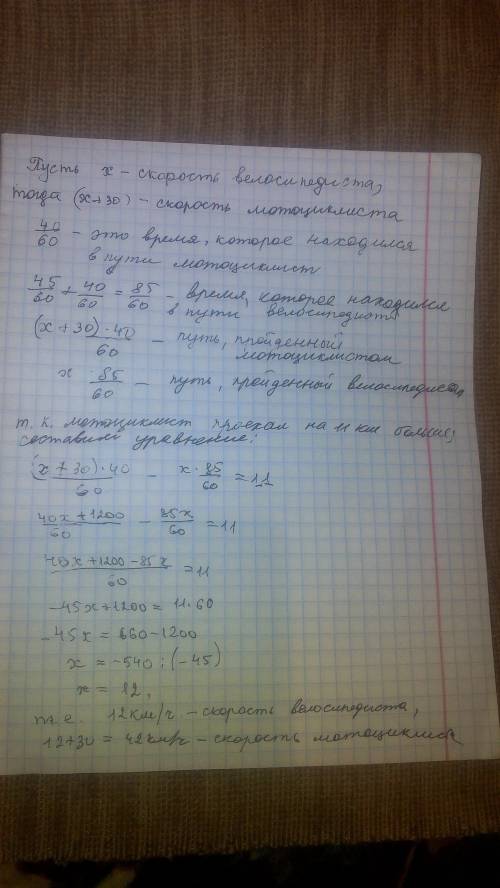 Пусть x – скорость велосипедиста,
тогда (x+30) – скорость мотоциклиста
40/60 – это время, которое находился
в пути мотоциклист
45/60 + 40/60 = 85/60 – время, которое находился
в пути велосипедист
(x+30)·40/60 – путь, пройденный
мотоциклистом
x 85/60 – путь, пройденный велосипедистом
т. к. мотоциклист проехал на 11 км больше,
составим уравнение:
(x+30)·40/60 – x·85/60 = 11
40x+1200/60 – 85x/60 = 11
40x+1200–85x/60 = 11
–45x+1200 = 11·60
–45x = 660–1200
x = –540 : (–45)
x = 12,
т.е. 12км/ч. – скорость велосипедиста,
12+30 = 42км/ч – скорость мотоциклиста